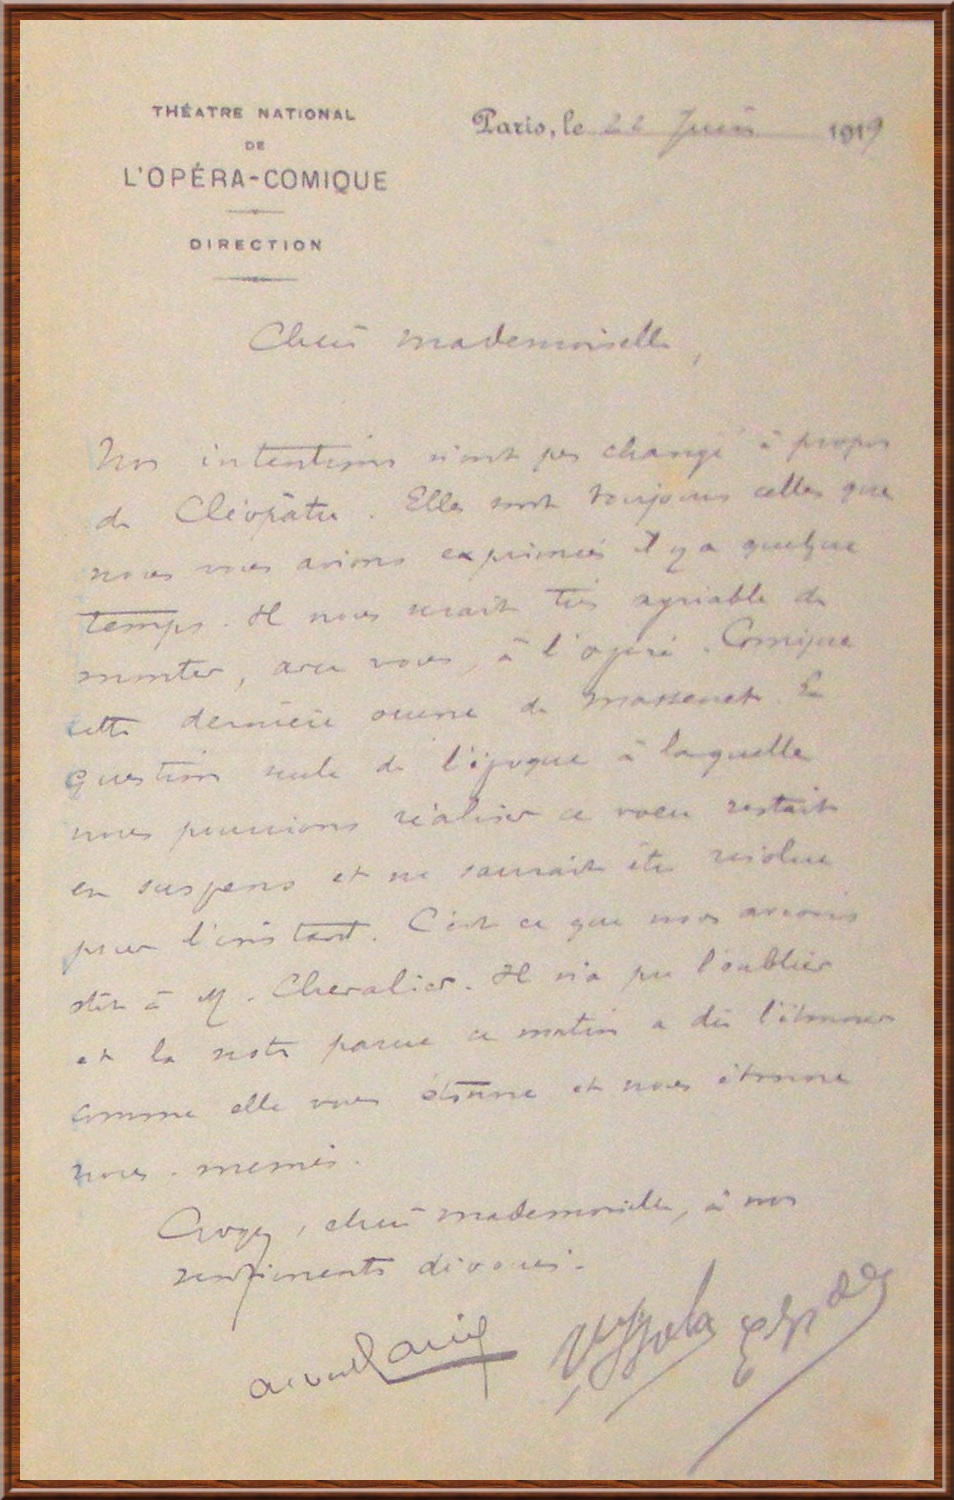 THÉATRE NATIONAL
DE
L'OPÉRA-COMIQUE
DIRECTION
Paris, le 22 Juin 1919
Chère mademoiselle,
Nos intentions n'ont pas changé à propos
de Cléopâtre. Elles sont toujours celles que
nous vous avions exprimées il y a quelque
temps. Il nous serait très agréable de
monter, avec vous, à l'opéra-Comique
cette dernière œuvre de Massenet. La
question seule de l'époque à laquelle
nous pourrions réaliser ce vœu restait
en suspens et ne saurait être résolue
pour l'instant. C'est ce que nous avions
dit à M. Chevalier. Il n'a pu l'oublier
et la note parue ce matin a dû l'étonner
comme elle vous étonne et nous étonne
nous-mêmes.
Croyez, chère mademoiselle, à nos
sentiments dévoués.